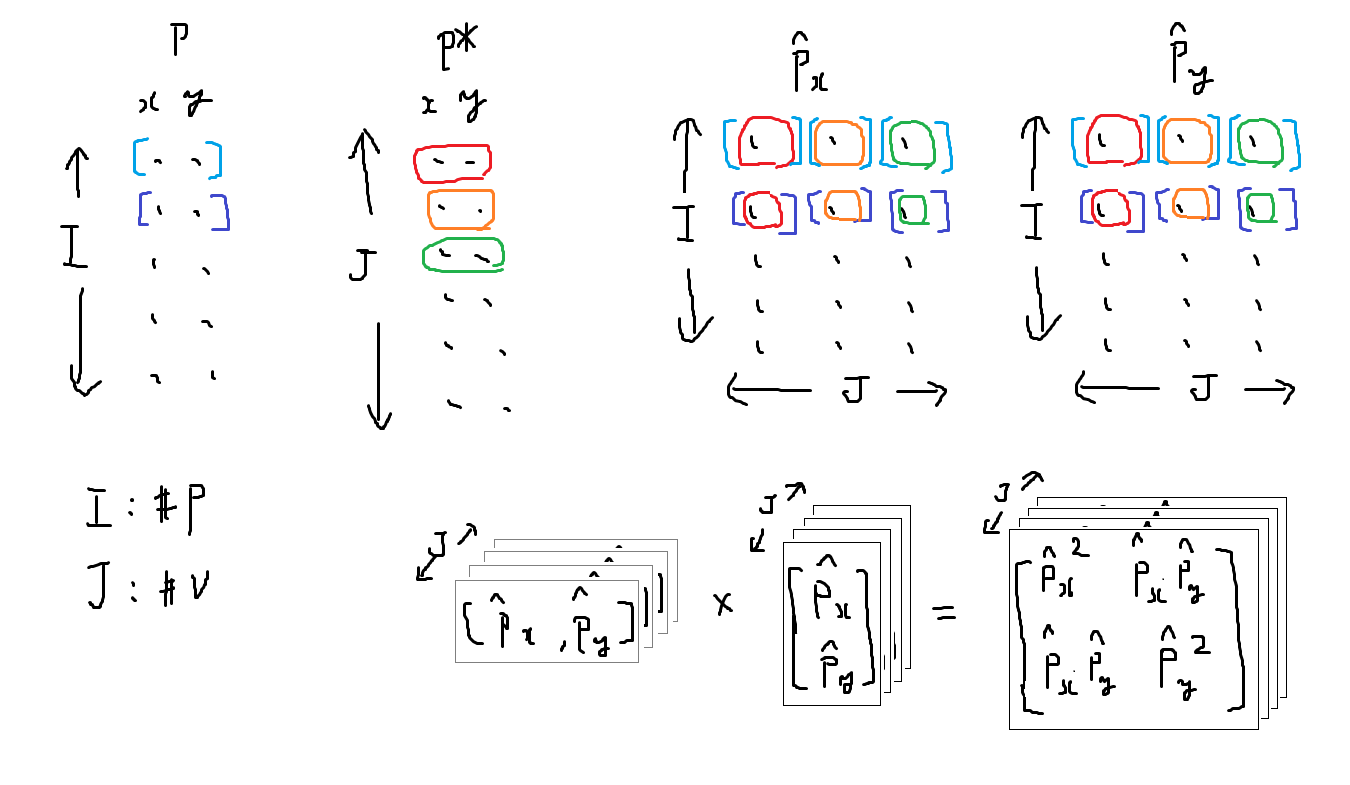 P
x y
I
p*
x y
J
P̂x
I
J
P̂y
I
J
I : #P
J : #V
J
[P̂x , P̂y]
×
J
[P̂x
P̂y]
=
J
[P̂x² P̂x·P̂y
P̂x·P̂y P̂y²]